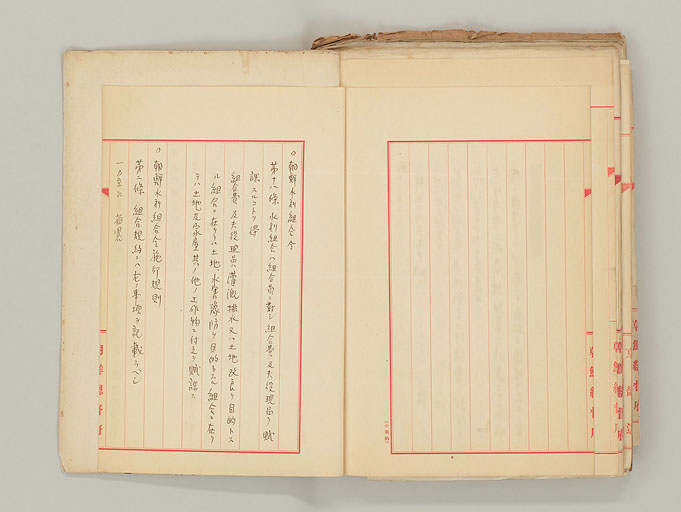 朝鮮水利組合令
第十八條 水利組合ハ組合員ニ對シ組合費及夫役現品ヲ賦
課スルコトヲ得
組合費及夫役現品ハ灌漑排水又ハ土地改良ヲ目的トス
ル組合ニ在リテハ土地、水害豫防ヲ目的トスル組合ニ在リ
テハ土地及家屋其ノ他ノ工作物ニ付之ヲ賦課ス
朝鮮水利組合令施行規則
第二條 組合規約ニハ左ノ事項ヲ記載スベシ
朝鮮總督府
朝鮮總督府